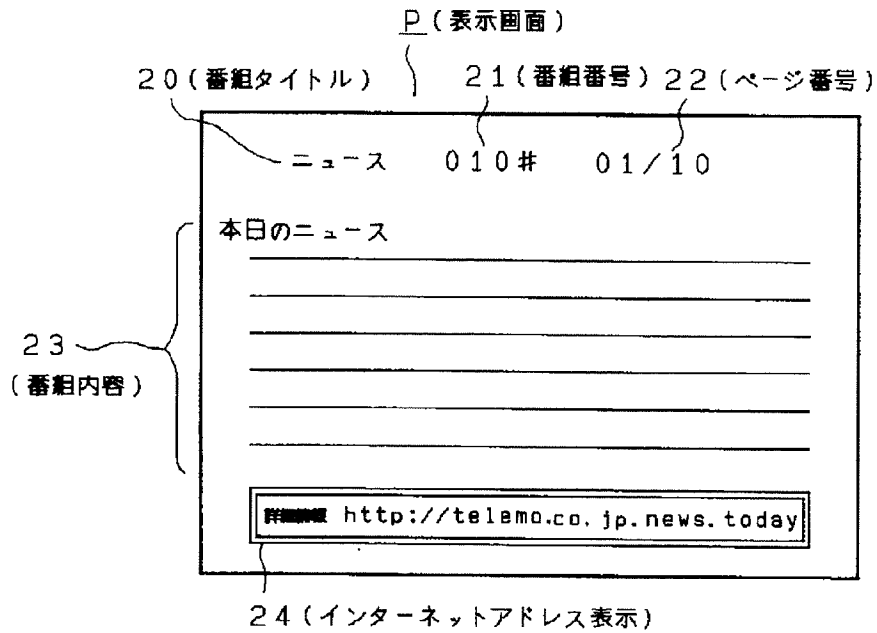 P(表示画面)
20(番組タイトル) 21(番組番号) 22(ページ番号)
ニュース 010# 01/10
本日のニュース
23
(番組内容)
詳細情報 http://telemo.co.jp.news.today
24(インターネットアドレス表示)